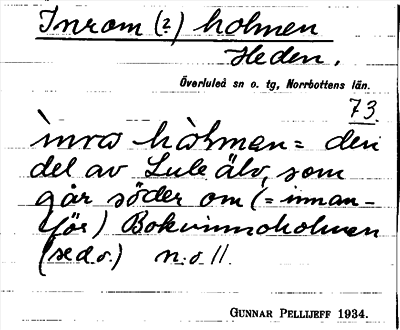 Inrom (?) holmen
Heden.
Överluleå sn o. tg, Norrbottens län.
73.
hòlmen = den
del av Lule älv, som
går söder om (= innan-
för) Bokvinnoholmen
(se d.o.) n. o 11.
GUNNAR PELLIJEFF 1934.